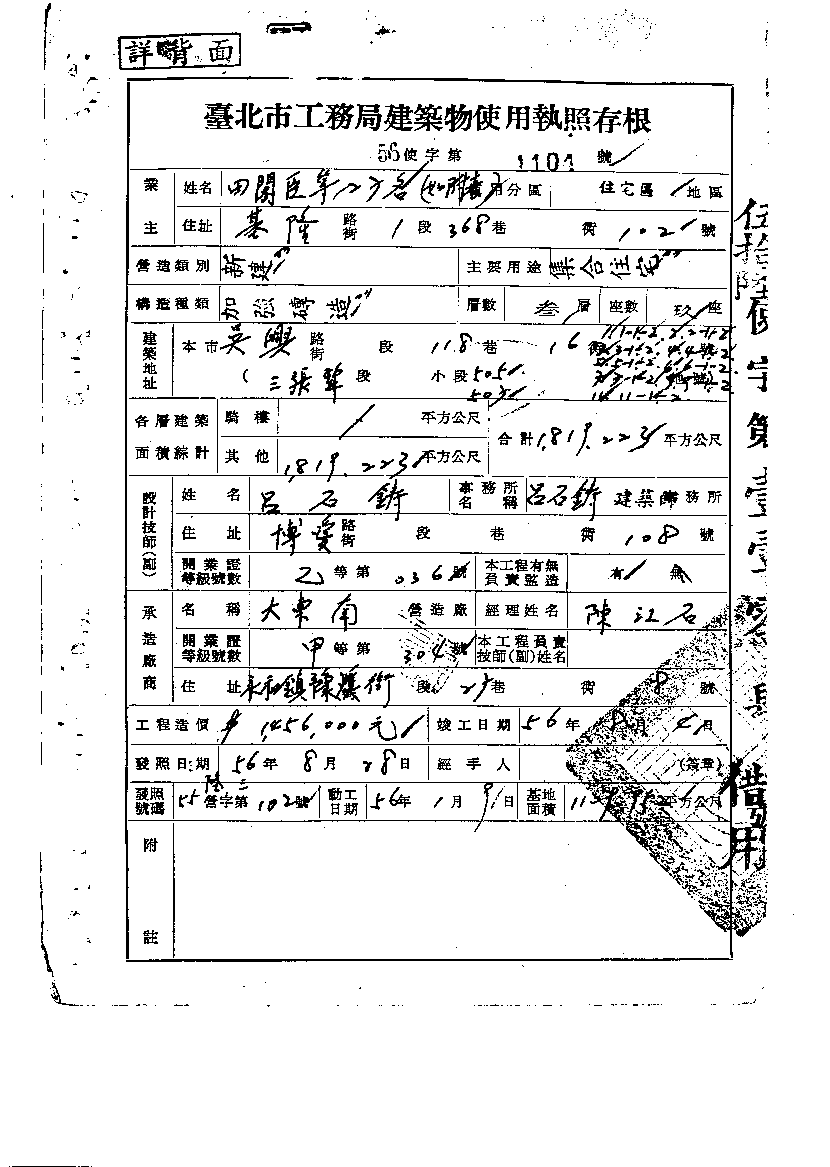 詳背面
臺北市工務局建築物使用執照存根
56使字第 1101 號
業主 姓名 田閣臣等 分區 住宅區 地區
住址 基隆 路街 1 段 368 巷 衖 102 號
營造類別 新建 主要用途 集合住宅
構造種類 加強磚造 層數 叁 層 座數 玖 座
建築地址 本市 吳興 路街 段 118 巷 16 衖 號
(三張犂 段 小段 505 503 地號
各層建築面積綜計 騎樓 / 平方公尺 合計 1,819.223 平方公尺
其他 1,819.223 平方公尺
設計技師(副) 姓名 呂石鑄 事務所名稱 呂石鑄 建築師事務所
住址 博愛 路街 段 巷 衖 108 號
開業證等級號數 乙 等第 036 號 本工程有無負責監造 有 無
承造廠商 名稱 大東南 營造廠 經理姓名 陳江石
開業證等級號數 甲 等第 304 號 本工程負責技師(副)姓名
住址 永和鎮 街 段 巷 衖 8 號
工程造價 1,456,000元 竣工日期 56年 8月 4日
發照日期 56年 8月 28日 經手人 (簽章)
發照號碼 55 營字第 102 號 動工日期 56年 1月 9日 基地面積 平方公尺
附註
伍拾陸使字第壹壹零壹號
借用